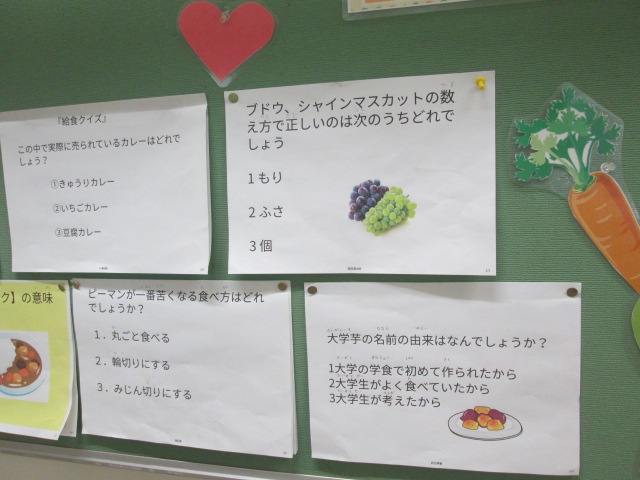 『給食クイズ』
この中で実際に売られているカレーはどれで
しょう?
①きゅうりカレー
②いちごカレー
③豆腐カレー
ブドウ、シャインマスカットの数
え方で正しいのは次のうちどれで
しょう
1もり
2ふさ
3個
ク】の意味
ピーマンが一番苦くなる食べ方はどれ
でしょうか?
1.丸ごと食べる
2.輪切りにする
3.みじん切りにする
大学芋の名前の由来はなんでしょうか?
1大学の学食で初めて作られたから
2大学生がよく食べていたから
3大学生が考えたから